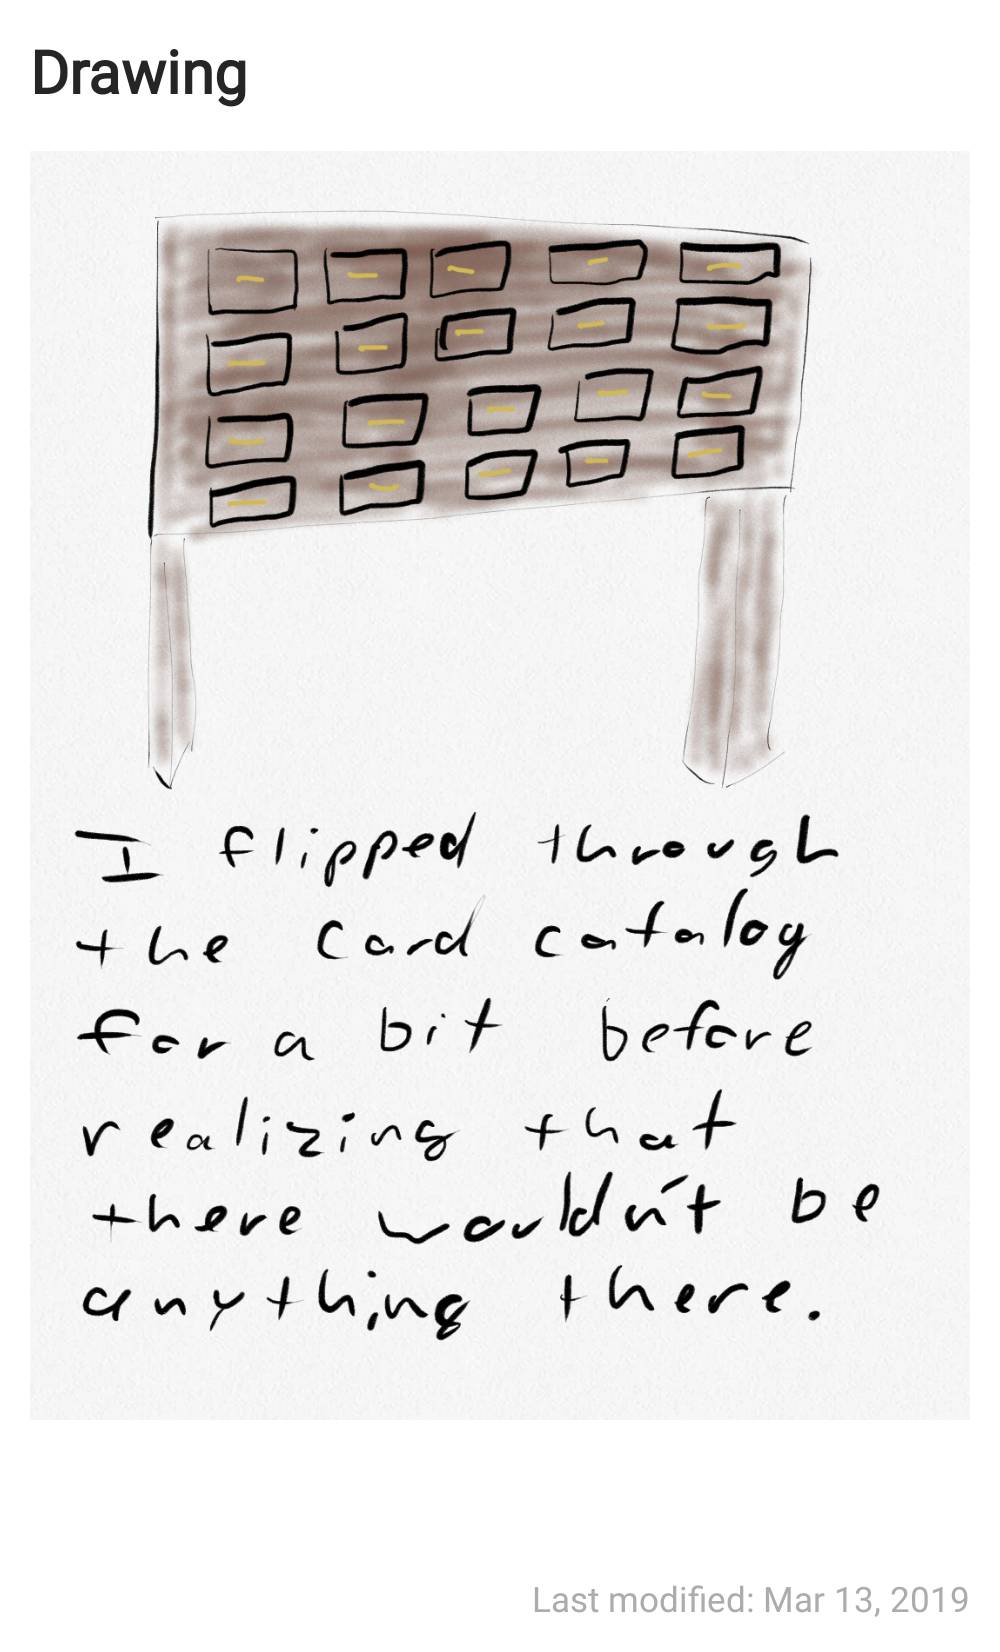 Drawing
I flipped through
the card catalog
for a bit before
realizing that
there wouldn't be
anything there.
Last modified: Mar 13, 2019